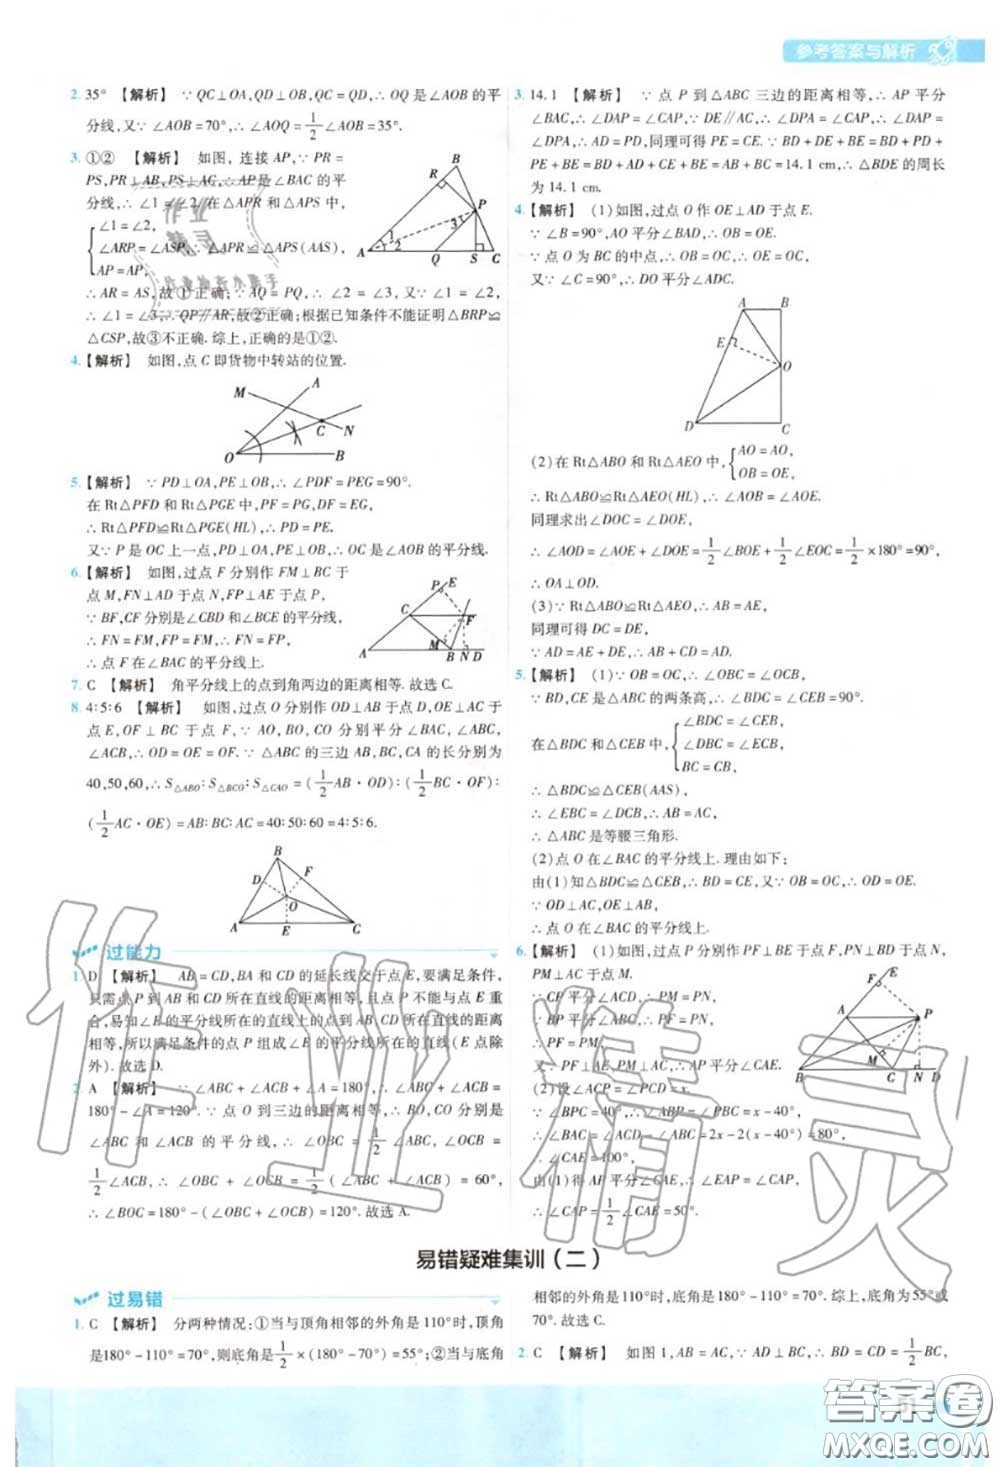 参考答案与解析
2. 35° 【解析】 ∵QC⊥OA,QD⊥OB,QC=QD,∴OQ是∠AOB的平
分线,又∵∠AOB=70°,∴∠AOQ=1/2∠AOB=35°.
3. ①② 【解析】 如图,连接AP,∵PR=
PS,PR⊥AB,PS⊥AC,∴AP是∠BAC的平
分线,∴∠1=∠2.在△APR和△APS中,
∠1=∠2,
∠ARP=∠ASP,∴△APR≌△APS(AAS),
AP=AP,
∴AR=AS,故①正确;∵AQ=PQ,∴∠2=∠3,又∵∠1=∠2,
∴∠1=∠3,∴QP∥AR,故②正确;根据已知条件不能证明△BRP≌
△CSP,故③不正确.综上,正确的是①②.
B
R
P
A
1
2
3
Q
S
C
4. 【解析】 如图,点C即货物中转站的位置.
M
A
C
N
O
B
5. 【解析】 ∵PD⊥OA,PE⊥OB,∴∠PDF=∠PEG=90°.
在Rt△PFD和Rt△PGE中,PF=PG,DF=EG,
∴Rt△PFD≌Rt△PGE(HL),∴PD=PE.
又∵P是OC上一点,PD⊥OA,PE⊥OB,∴OC是∠AOB的平分线.
6. 【解析】 如图,过点F分别作FM⊥BC于
点M,FN⊥AD于点N,FP⊥AE于点P,
∵BF,CF分别是∠CBD和∠BCE的平分线,
∴FN=FM,FP=FM,∴FN=FP,
∴点F在∠BAC的平分线上.
P
E
C
F
M
A
B
N
D
7. C 【解析】 角平分线上的点到角两边的距离相等.故选C.
8. 4∶5∶6 【解析】 如图,过点O分别作OD⊥AB于点D,OE⊥AC于
点E,OF⊥BC于点F,∵AO,BO,CO分别平分∠BAC,∠ABC,
∠ACB,∴OD=OE=OF.∵△ABC的三边AB,BC,CA的长分别为
40,50,60,∴S△ABO∶S△BCO∶S△CAO=(1/2AB·OD)∶(1/2BC·OF)∶
(1/2AC·OE)=AB∶BC∶AC=40∶50∶60=4∶5∶6.
B
D
F
O
A
E
C
过能力
1. D 【解析】 AB=CD,BA和CD的延长线交于点E,要满足条件,
只需点P到AB和CD所在直线的距离相等,且点P不能与点E重
合,易知∠E的平分线所在的直线上的点到AB和CD所在直线的距离
相等,所以满足条件的点P组成∠E的平分线所在的直线(E点除
外).故选D.
2. A 【解析】 ∵∠ABC+∠ACB+∠A=180°,∴∠ABC+∠ACB=
180°-∠A=120°.∵点O到三边的距离相等,∴BO,CO分别是
∠ABC和∠ACB的平分线,∴∠OBC=1/2∠ABC,∠OCB=
1/2∠ACB,∴∠OBC+∠OCB=1/2(∠ABC+∠ACB)=60°,
∴∠BOC=180°-(∠OBC+∠OCB)=120°.故选A.
3. 14.1 【解析】 ∵点P到△ABC三边的距离相等,∴AP平分
∠BAC,∴∠DAP=∠CAP.∵DE∥AC,∴∠DPA=∠CAP,∴∠DAP=
∠DPA,∴AD=PD,同理可得PE=CE.∵BD+DE+BE=BD+PD+
PE+BE=BD+AD+CE+BE=AB+BC=14.1 cm,∴△BDE的周长
为14.1 cm.
4. 【解析】 (1)如图,过点O作OE⊥AD于点E.
∵∠B=90°,AO平分∠BAD,∴OB=OE.
∵点O为BC的中点,∴OB=OC,∴OC=OE,
又∵∠C=90°,∴DO平分∠ADC.
A
B
E
O
D
C
(2)在Rt△ABO和Rt△AEO中,
AO=AO,
OB=OE,
∴Rt△ABO≌Rt△AEO(HL),∴∠AOB=∠AOE,
同理求出∠DOC=∠DOE,
∴∠AOD=∠AOE+∠DOE=1/2∠BOE+1/2∠EOC=1/2×180°=90°,
∴OA⊥OD.
(3)∵Rt△ABO≌Rt△AEO,∴AB=AE,
同理可得DC=DE,
∵AD=AE+DE,∴AD=AB+CD.
5. 【解析】 (1)∵OB=OC,∴∠OBC=∠OCB,
∵BD,CE是△ABC的两条高,∴∠BDC=∠CEB=90°.
在△BDC和△CEB中,
∠BDC=∠CEB,
∠DBC=∠ECB,
BC=CB,
∴△BDC≌△CEB(AAS),
∴∠EBC=∠DCB,∴AB=AC,
∴△ABC是等腰三角形.
(2)点O在∠BAC的平分线上.理由如下:
由(1)知△BDC≌△CEB,∴BD=CE,又∵OB=OC,∴OD=OE.
∵OD⊥AC,OE⊥AB,
∴点O在∠BAC的平分线上.
6. 【解析】 (1)如图,过点P分别作PF⊥BE于点F,PN⊥BD于点N,
PM⊥AC于点M.
∵CP平分∠ACD,∴PM=PN,
∵BP平分∠ABC,∴PF=PN,
∴PF=PM,
又∵PF⊥AE,PM⊥AC,∴AP平分∠CAE.
(2)设∠ACP=∠PCD=x.
∵∠BPC=40°,∴∠ABP=∠PBC=x-40°,
∴∠BAC=∠ACD-∠ABC=2x-2(x-40°)=80°,
∴∠CAE=100°,
由(1)得AP平分∠CAE,∴∠EAP=∠CAP=
∴∠CAP=1/2∠CAE=50°.
E
F
A
P
M
B
C
N
D
易错疑难集训(二)
过易错
1. C 【解析】 分两种情况:①当与顶角相邻的外角是110°时,顶角
是180°-110°=70°,则底角是1/2×(180°-70°)=55°;②当与底角
相邻的外角是110°时,底角是180°-110°=70°.综上,底角为55°或
70°.故选C.
2. C 【解析】 如图1,AB=AC,∵AD⊥BC,∴BD=CD=1/2BC,
作业精灵
答案卷
MXQE.COM